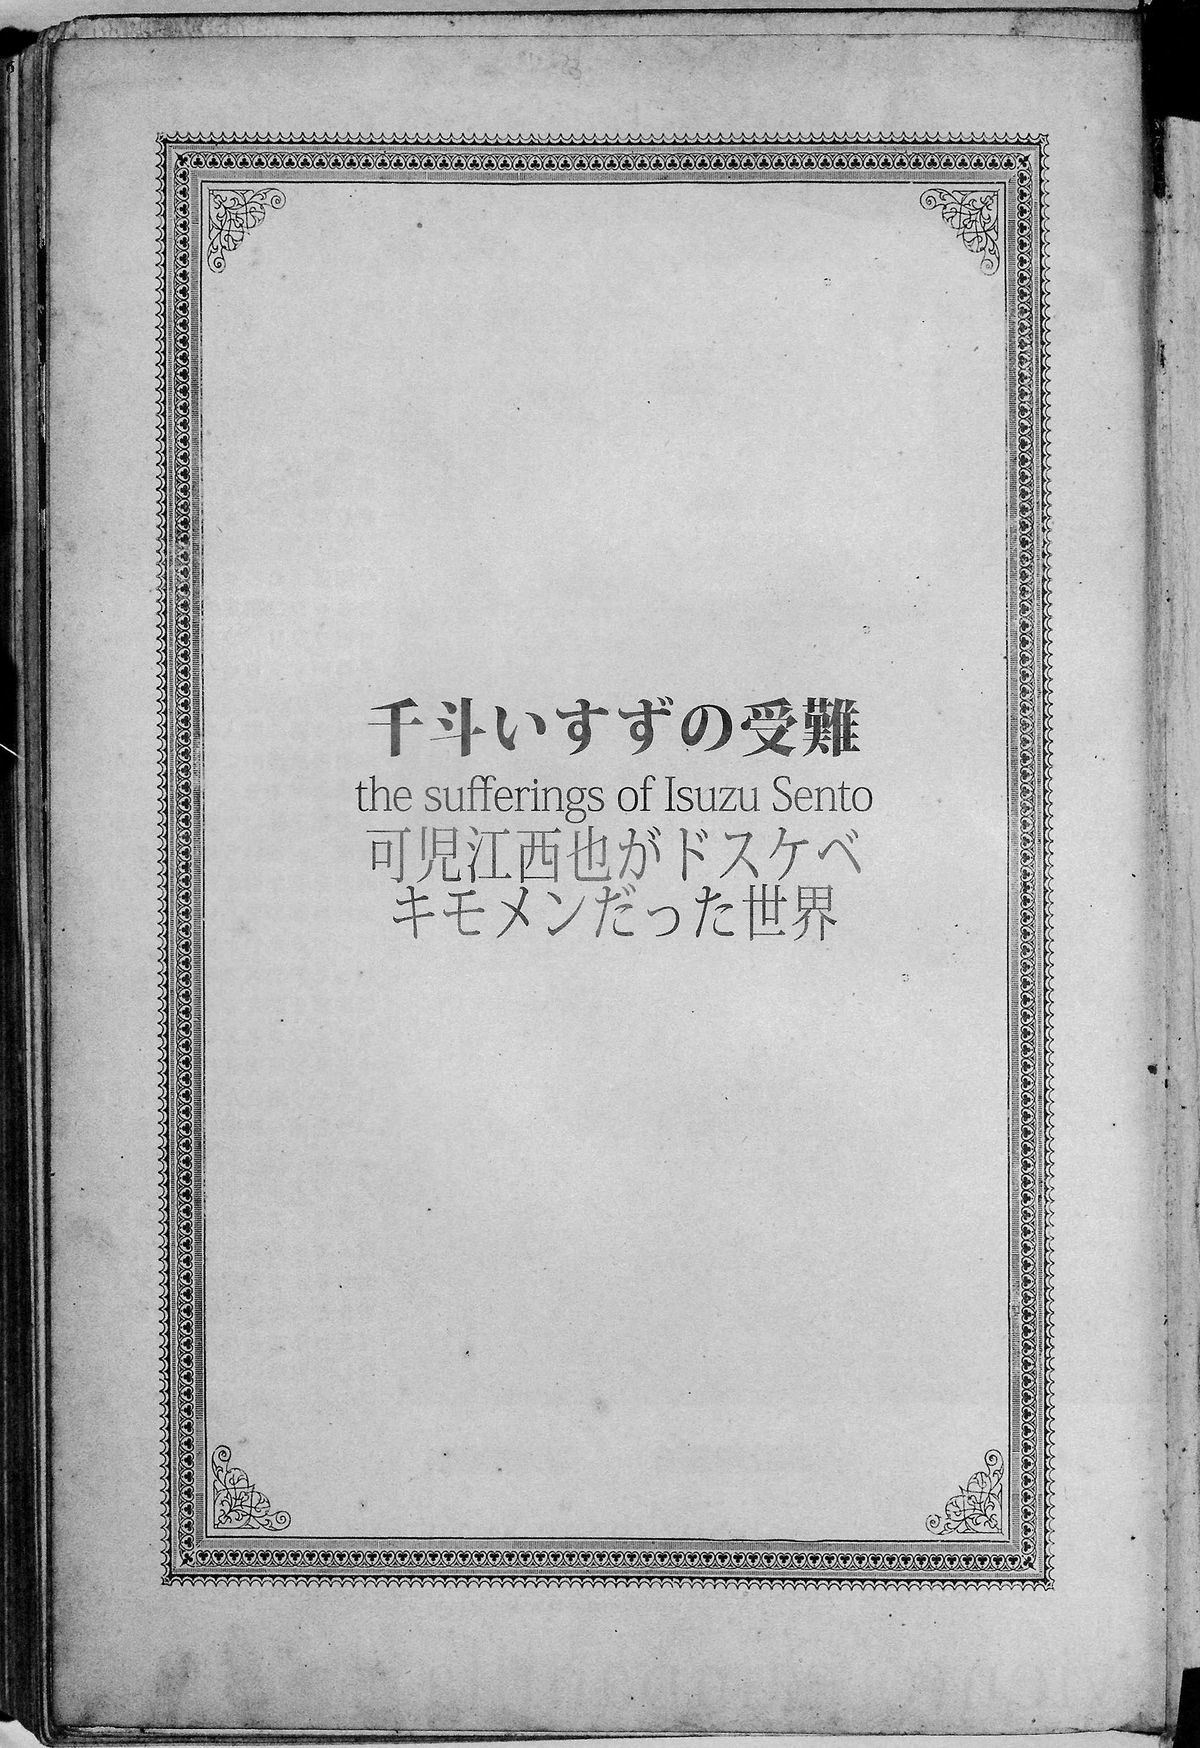 千斗いすずの受難
the sufferings of Isuzu Sento
可児江西也がドスケベ
キモメンだった世界